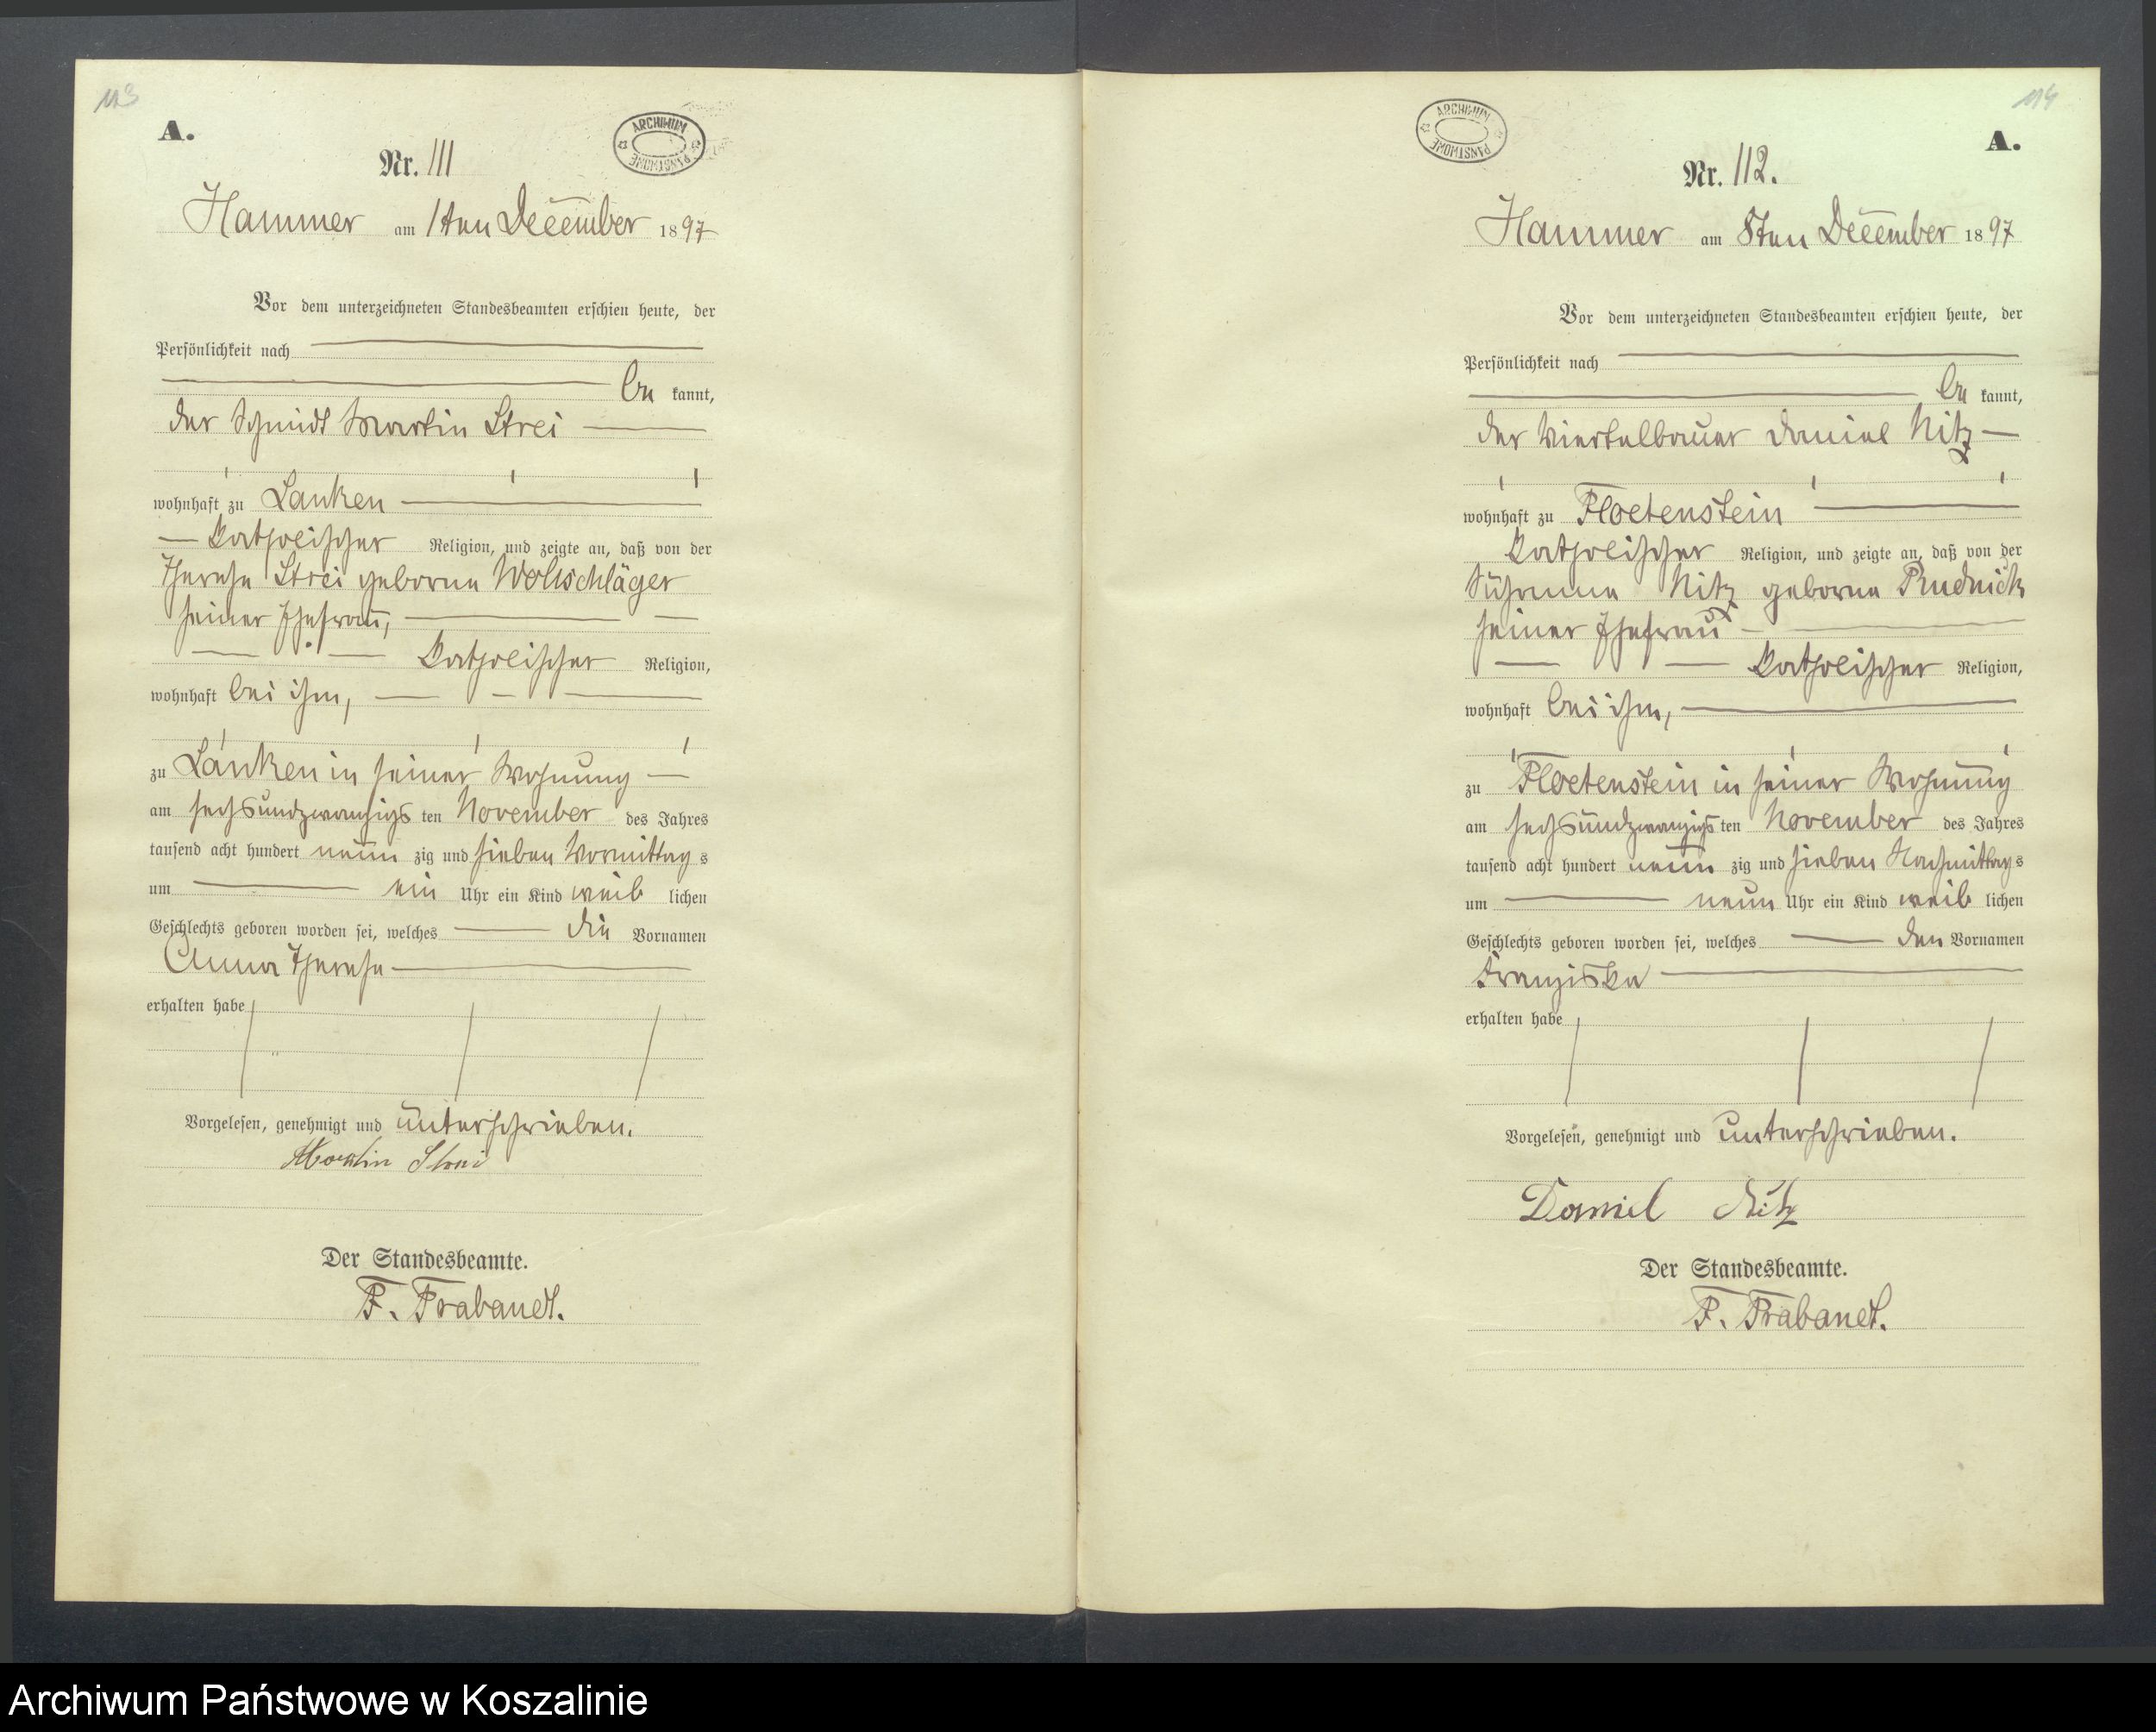 113
A.
ARCHIWUM PAŃSTWOWE
Nr. 111
Hammer am 1ten December 1897
Vor dem unterzeichneten Standesbeamten erschien heute, der
Persönlichkeit nach
be kannt,
der Schmidt Martin Strei
wohnhaft zu Lanken
katholischer Religion, und zeigte an, daß von der
Therese Strei geborne Wollschläger
seiner Ehefrau,
katholischer Religion,
wohnhaft bei ihm,
zu Lanken in seiner Wohnung
am sechsundzwanzigs ten November des Jahres
tausend acht hundert neun zig und sieben Vormittag s
um ein Uhr ein Kind weib lichen
Geschlechts geboren worden sei, welches die Vornamen
Anna Therese
erhalten habe
Vorgelesen, genehmigt und unterschrieben.
Martin Strei
Der Standesbeamte.
F. Prabandt.
114
A.
ARCHIWUM PAŃSTWOWE
Nr. 112.
Hammer am 8ten December 1897
Vor dem unterzeichneten Standesbeamten erschien heute, der
Persönlichkeit nach
be kannt,
der Viertelbauer Daniel Nitz
wohnhaft zu Floetenstein
katholischer Religion, und zeigte an, daß von der
Susanna Nitz geborne Rudnick
seiner Ehefrau
katholischer Religion,
wohnhaft bei ihm,
zu Floetenstein in seiner Wohnung
am sechsundzwanzigs ten November des Jahres
tausend acht hundert neun zig und sieben Nachmittag s
um neun Uhr ein Kind weib lichen
Geschlechts geboren worden sei, welches den Vornamen
Franziska
erhalten habe
Vorgelesen, genehmigt und unterschrieben.
Daniel Nitz
Der Standesbeamte.
F. Prabandt.
Archiwum Państwowe w Koszalinie